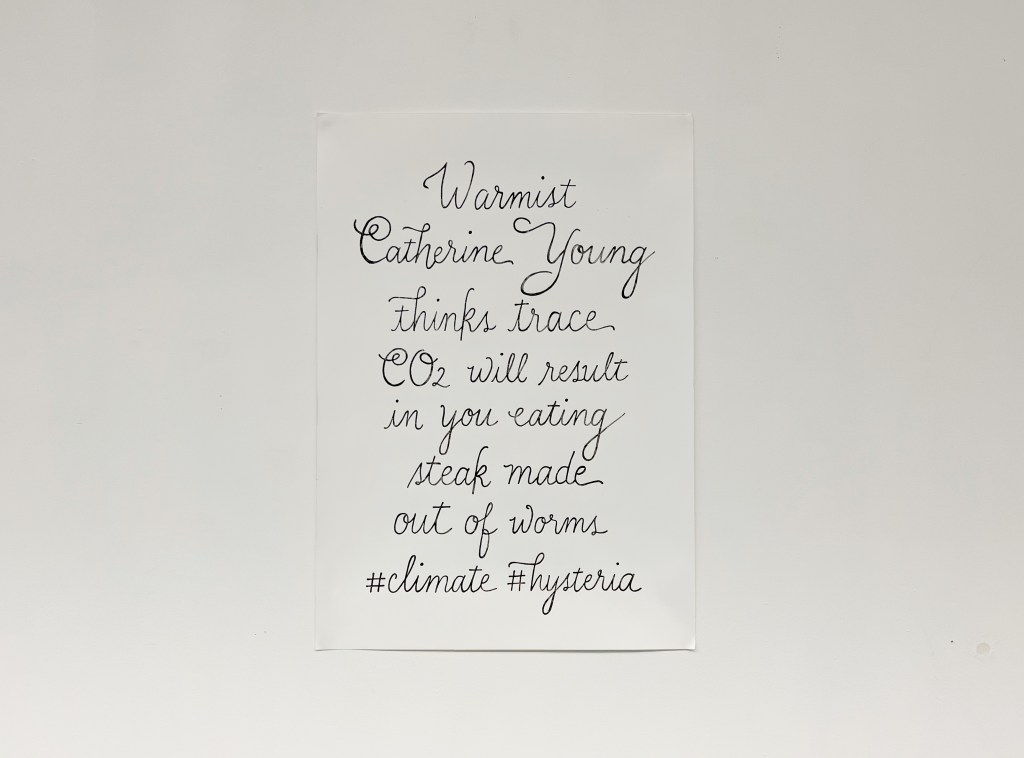 Warmist
Catherine Young
thinks trace
CO2 will result
in you eating
steak made
out of worms
#climate #hysteria